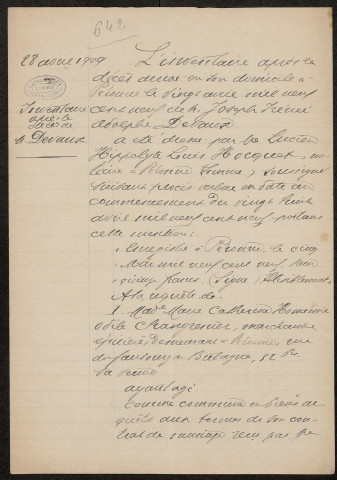 642
28 avril 1909
Inventaire
après le
décès de
M. Devaux
L'inventaire après le
décès arrivé en son domicile à
Péronne le vingt avril mil neuf
cent neuf de M. Joseph Irénée
Adolphe Devaux
a été dressé par Me Lucien
Hippolyte Louis Hocquet, no-
taire à Péronne Somme, soussigné
suivant procès verbal en date au
commencement du vingt huit
avril mil neuf cent neuf portant
cette mention :
Enregistré à Péronne, le cinq
Mai mil neuf cent neuf,
francs, (signé)
A la requête de :
1 Made Marie Catherine
Odile, marchande
épicière, demeurant à Péronne, rue
du faubourg de Bretagne, 52
sa veuve
ayant agi
comme commune en biens
aux termes de son con-
trat de mariage reçu par Me